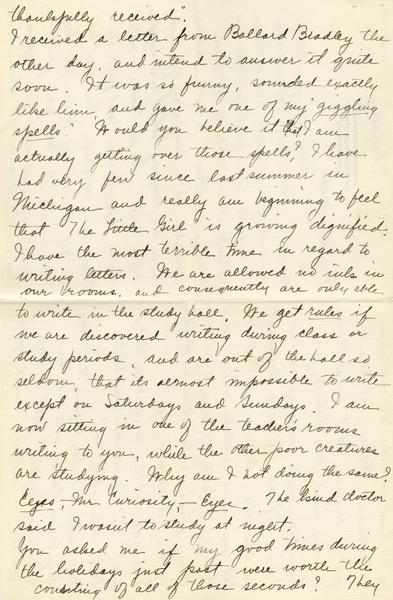 thankfully received".
I received a letter from Ballard Bradley the
other day, and intend to answer it quite
soon. It was so funny, sounded exactly
like him, and gave me one of my "giggling
spells." Would you believe it that I am
actually getting over those spells? I have
had very few since last summer in
Michigan and really am beginning to feel
that The Little Girl is growing dignified.
I have the most terrible time in regard to
writing letters. We are allowed no ink in
our rooms, and consequently are only able
to write in the study hall. We get rules if
we are discovered writing during class or
study periods, and are out of the hall so
seldom, that its almost impossible to write
except on Saturdays and Sundays. I am
now sitting in one of the teacher's rooms
writing to you, while the other poor creatures
are studying. Why am I not doing the same?
Eyes, - Mr. Curiosity, - Eyes. The kind doctor
said I wasn't to study at night.
You asked me if my good times during
the holidays just past were worth the
counting of all of those seconds? They